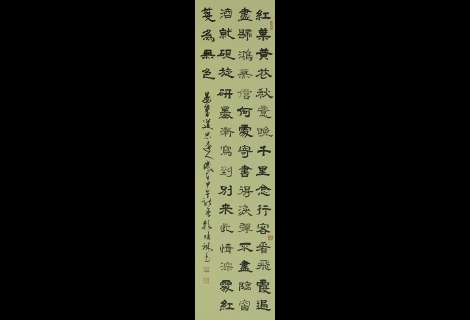 紅葉黃花秋意晚千里念行客看飛雲過
盡歸鴻無信何處寄書得淚彈不盡臨窗
滴就硯旋研墨漸寫到別來此情深處紅
箋為無色
晏幾道思遠人歲在甲午